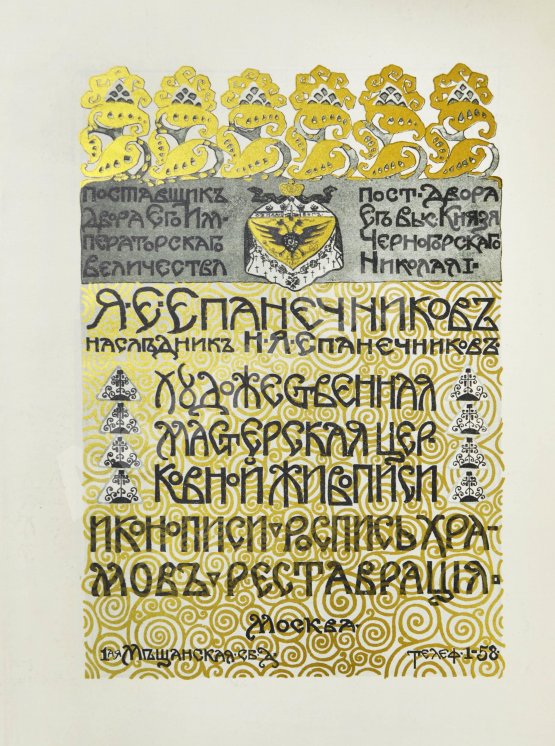 ПОСТАВЩИКЪ
ДВОРА ЕГО ИМ-
ПЕРАТОРСКАГО
ВЕЛИЧЕСТВА
ПОСТ·ДВОРА
ЕГЪ ВЫС·КНЯЗЯ
ЧЕРНОГОРСКАГО
НИКОЛАЯ I·
Я·Е·ЕПАНЕЧНИКОВЪ
НАСЛѢДНИКЪ Н·Я·ЕПАНЕЧНИКОВЪ·
ХУДОЖЕСТВЕННАЯ
МАСТЕРСКАЯ ЦЕР-
КОВНОЙ ЖИВОПИСИ
ИКОНОПИСИ·РОСПИСЬ ХРА-
МОВЪ·РЕСТАВРАЦІЯ·
МОСКВА·
1ая МѢЩАНСКАЯ·СВ.Д.
ТЕЛЕФ·1-58·